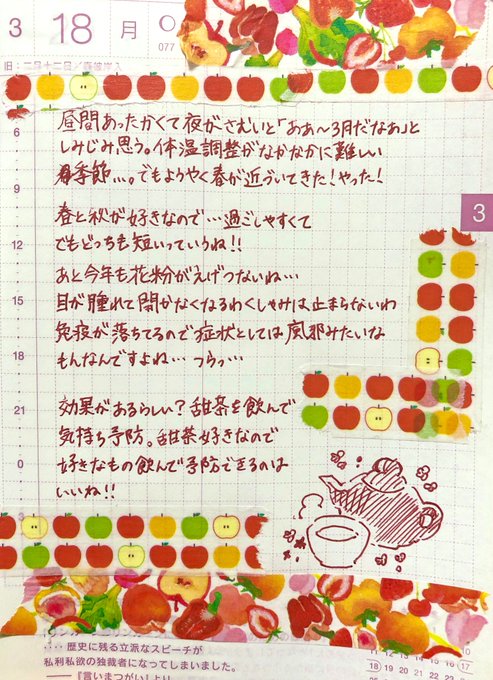 3 18 月
077
旧:二月十二日/彼岸入
3
6
9
12
15
18
21
0
3
昼間あったかくて夜がさむいと「ああ〜3月だなあ」と
しみじみ思う。体温調整がなかなかに難しい
季節…。でもようやく春が近づいてきた!やった!
春と秋が好きなので…過ごしやすくて
でもどっちも短いっていうね!!
あと今年も花粉がえげつないね…
目が腫れて開かなくなるわくしゃみは止まらないわ
免疫が落ちてるので症状としては風邪みたいな
もんなんですよね…つらっ…
効果があるらしい?甜茶を飲んで
気持ち予防。甜茶好きなので
好きなもの飲んで予防できるのは
いいね!!
……歴史に残る立派なスピーチが
私利私欲の独裁者になってしまいました。
——『言いまつがい』より